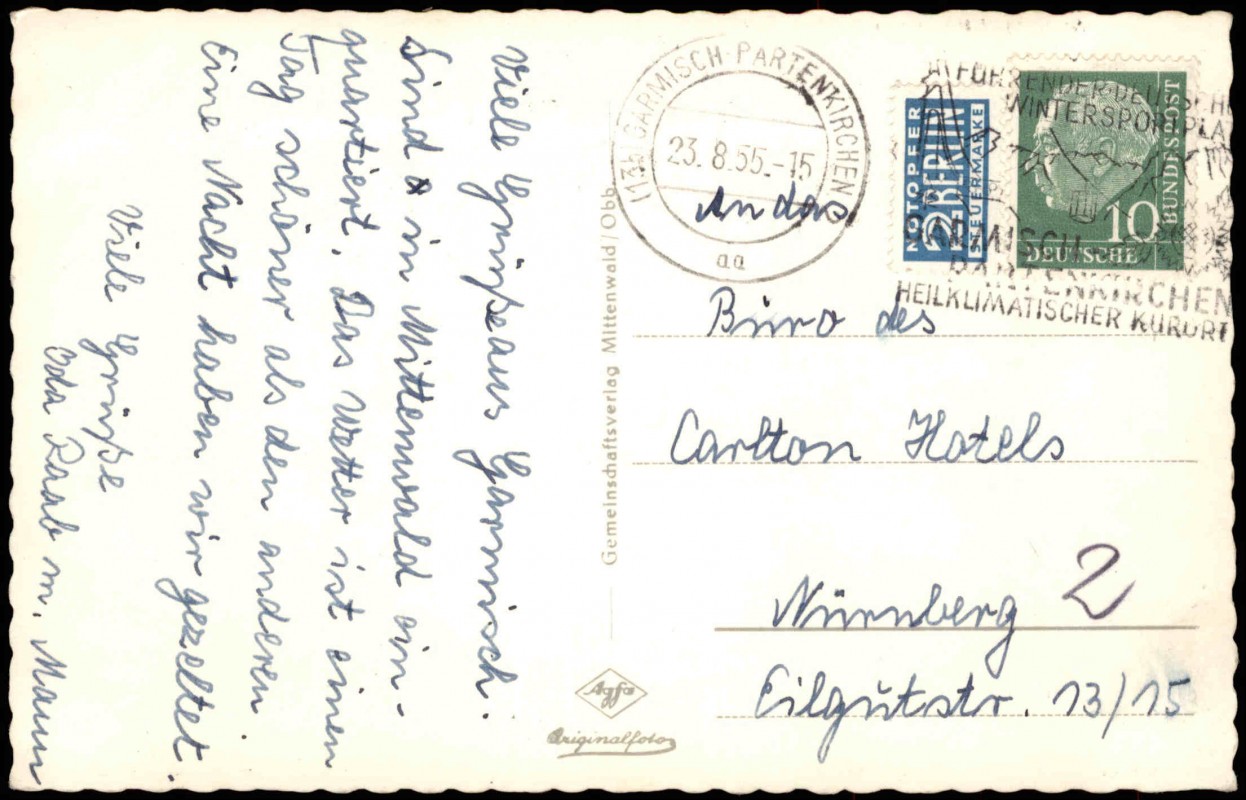 Viele Grüße aus Garmisch.
Sind in Mittenwald ein-
quartiert. Das Wetter ist einen
Tag schöner als den anderen.
Eine Nacht haben wir gezeltet.
Viele Grüße
Oda Raab m. Mann
Gemeinschaftsverlag Mittenwald/Obb.
Agfa
Originalfoto
(13b) GARMISCH-PARTENKIRCHEN
23.8.55.-15
aa
NOTOPFER
2 BERLIN
STEUERMARKE
DEUTSCHE
BUNDESPOST
10
FÜHRENDER DEUTSCHE
WINTERSPORTPLA
GARMISCH-
PARTENKIRCHEN
HEILKLIMATISCHER KURORT
An das
Büro des
Carlton Hotels
Nürnberg 2
Eilgutstr. 13/15